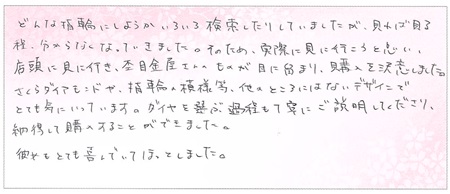 どんな指輪にしようかいろいろ検索したりしていましたが、見れば見る
程、分からなくなっていきました。そのため、実際に見に行こうと思い、
店頭に見に行き、杢目金屋さんのものが目に留まり、購入を決意しました。
さくらダイアモンドや、指輪の模様等、他のところにはないデザインで
とても気にいっています。ダイヤを選ぶ過程も丁寧にご説明してくださり、
納得して購入することができました。
彼女もとても喜んでいてほっとしました。